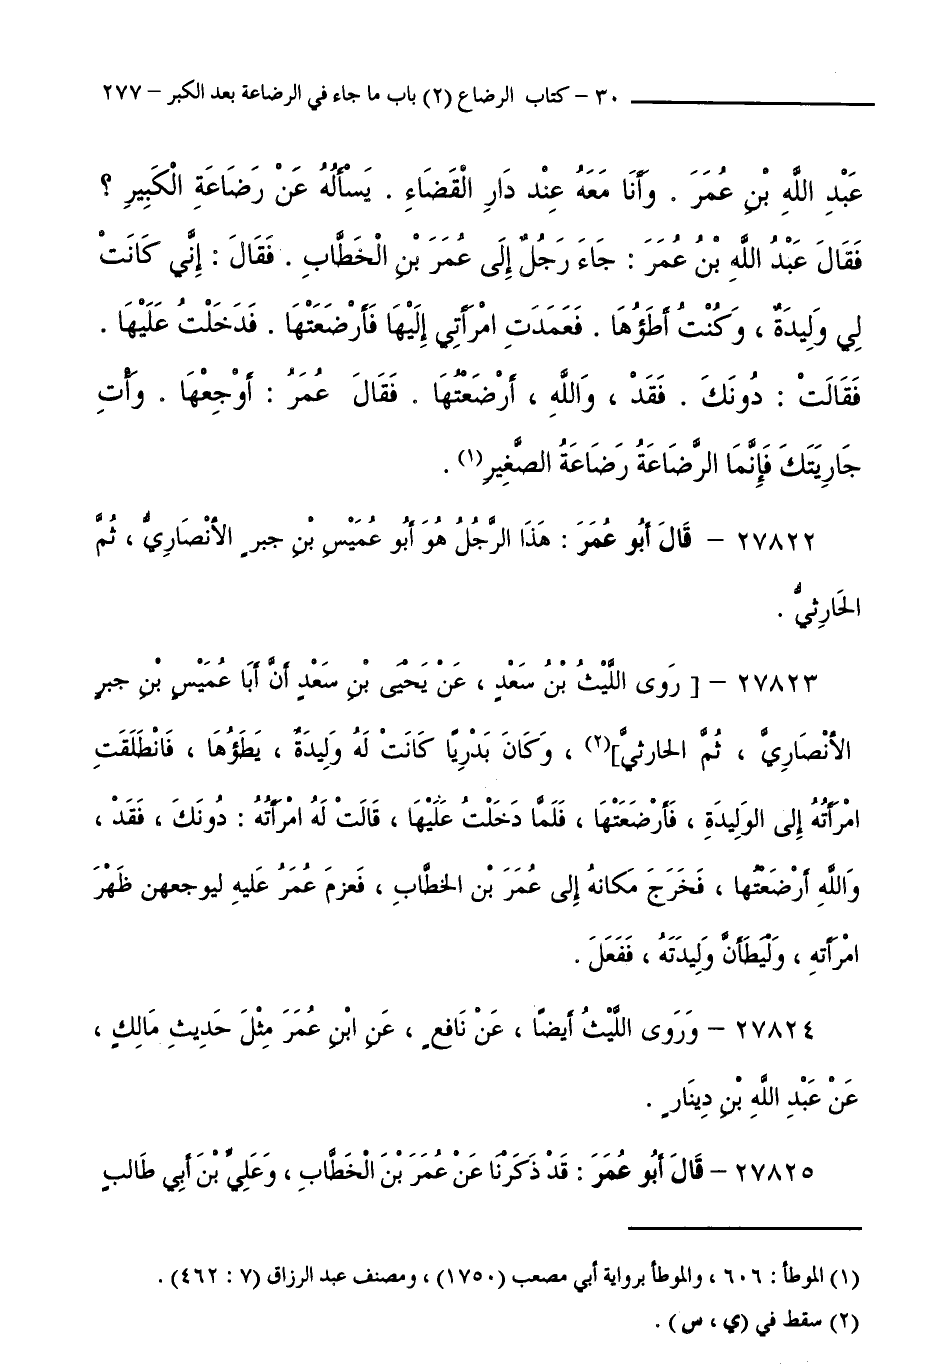 ٣٠ - كتاب الرضاع (٢) باب ما جاء في الرضاعة بعد الكبر - ٢٧٧
عَبْدِ اللَّهِ بْنِ عُمَرَ . وَأَنَا مَعَهُ عِنْد دَارِ الْقَضَاءِ . يَسأَلُهُ عَنْ رَضَاعَةِ الْكَبِيرِ ؟
فَقَالَ عَبْدُ اللَّهِ بْنُ عُمَرَ : جَاءَ رَجُلٌ إِلَى عُمَرَ بْنِ الْخَطَّابِ . فَقَالَ : إِنِّي كَانَتْ
لِي وَلِيدَةٌ ، وَكُنْتُ أَطَؤُهَا . فَعَمَدَتِ امْرَأَتِي إِلَيْهَا فَأَرْضَعَتْهَا . فَدَخَلْتُ عَلَيْهَا .
فَقَالَتْ : دُونَكَ . فَقَدْ ، وَاللَّهِ ، أَرْضَعْتُهَا . فَقَالَ عُمَرُ : أَوْجِعْهَا . وَأْتِ
جَارِيَتَكَ فَإِنَّمَا الرَّضَاعَةُ رَضَاعَةُ الصَّغِيرِ(١) .
٢٧٨٢٢ - قَالَ أَبُو عُمَرَ : هَذَا الرَّجُلُ هُوَ أَبُو عُمَيْسِ بْنِ جبرٍ الأَنْصَارِيُّ ، ثُمَّ
الحَارِثيُّ .
٢٧٨٢٣ - [ رَوى اللَّيْثُ بْنُ سَعْدٍ ، عَنْ يَحْيَى بْنِ سَعْدٍ أَنَّ أَبَا عُمَيْسِ بْنِ جبرٍ
الأَنْصَارِيَّ ، ثُمَّ الحارثيَّ](٢) ، وَكَانَ بَدْرِيًا كَانَتْ لَهُ وَلِيدَةٌ ، يَطَؤُهَا ، فَانْطَلَقَتِ
امْرَأَتُهُ إِلى الوَلِيدَةِ ، فَأَرْضَعَتْهَا ، فَلَمَّا دَخَلْتُ عَلَيْهَا ، قَالَتْ لَهُ امْرأَتُهُ : دُونَكَ ، فَقَدْ ،
وَاللَّهِ أَرْضَعْتُها ، فَخَرَجَ مَكانهُ إِلى عُمَرَ بْن الخطَّابِ ، فَعزمَ عُمَرُ عَليهِ ليوجعهن ظَهْرَ
امْرَأَتهِ ، وَلْيَطَأَنَّ وَلِيدَتَهُ ، فَفَعَلَ .
٢٧٨٢٤ - وَرَوَى اللَّيْثُ أيضًا ، عَنْ نَافِعٍ ، عَنِ ابْنِ عُمَرَ مِثْلَ حَدِيثِ مَالِكٍ ،
عَنْ عَبْدِ اللَّهِ بْنِ دِينَارٍ .
٢٧٨٢٥ - قَالَ أَبُو عُمَرَ : قَدْ ذَكَرْنَا عَنْ عُمَرَ بْنَ الْخَطَّابِ ، وَعَلِيِّ بْنَ أَبِي طَالبٍ
(١) الموطأ : ٦٠٦ ، والموطأ برواية أبي مصعب (١٧٥٠) ، ومصنف عبد الرزاق (٧ : ٤٦٢) .
(٢) سقط في (ي ، س ) .